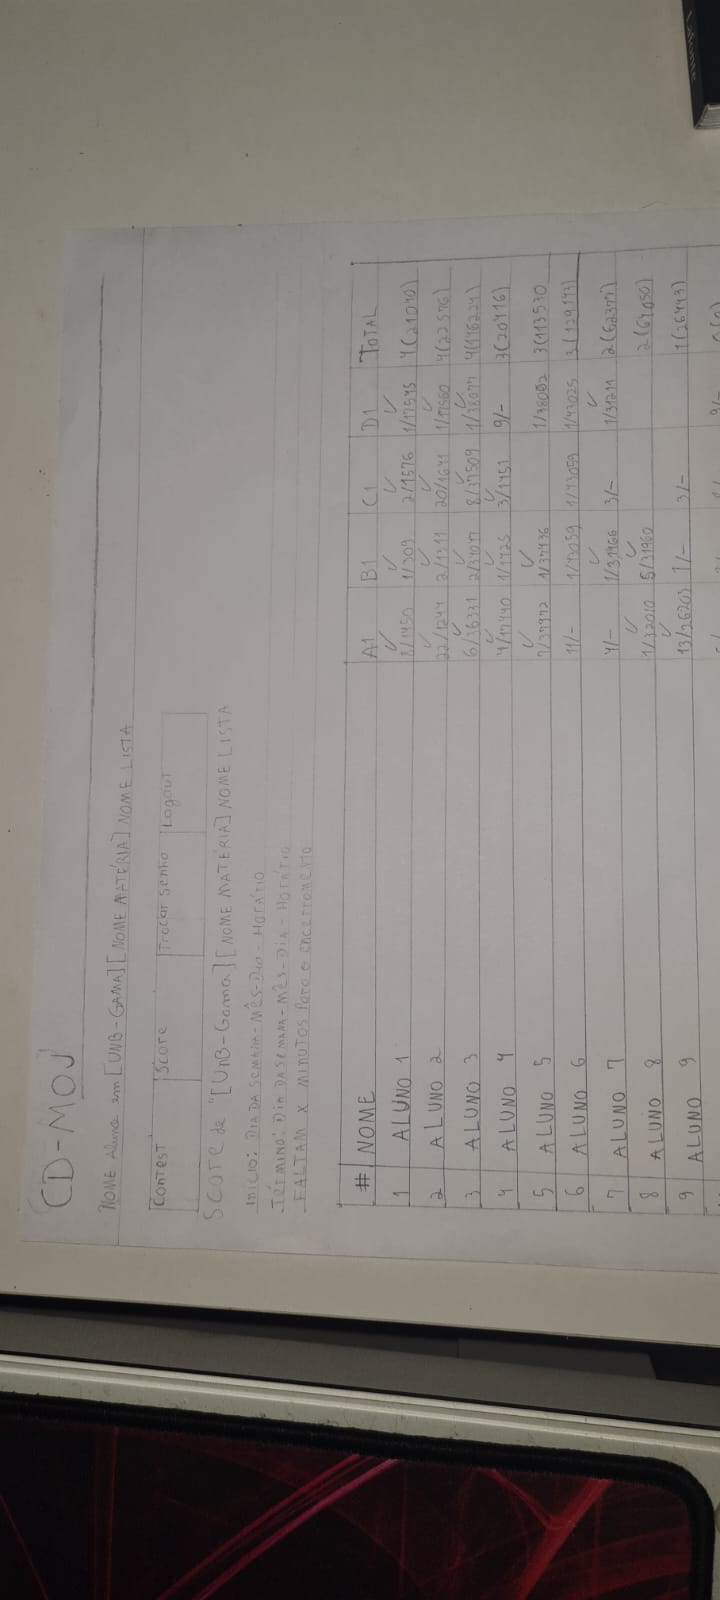 CD-MOJ
NOME Aluno em [UNB-GAMA][NOME MATÉRIA] NOME LISTA
Contest Score Trocar senha Logout
Score de "[UnB-Gama][NOME MATÉRIA] NOME LISTA
Início: DIA DA SEMANA-MÊS-DIA-HORÁRIO
Término: DIA DA SEMANA-MÊS-DIA-HORÁRIO
FALTAM X MINUTOS Para o encerramento
# NOME A1 B1 C1 D1 TOTAL
1 ALUNO 1 8/1450 1/309 2/1576 1/17545 4(21040)
2 ALUNO 2 22/1244 2/1311 20/1641 1/17560 4(22576)
3 ALUNO 3 6/36331 2/37077 8/37509 1/38077
4 ALUNO 4 4/17440 1/1425 3/1451 9/- 3(20416)
5 ALUNO 5 1/37436 1/38092 3(113530
6 ALUNO 6 11/- 1/43059 1/43059 1/43025 (129143)
7 ALUNO 7 4/- 1/31166 3/- 1/31211 2(62377)
8 ALUNO 8 1/32010 5/31960 2(64050)
9 ALUNO 9 13/26203 1/- 3/- 1(26443)